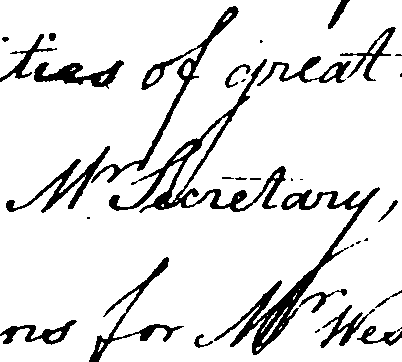 ties of great
Mr Secretary,
ns for Mr Wes